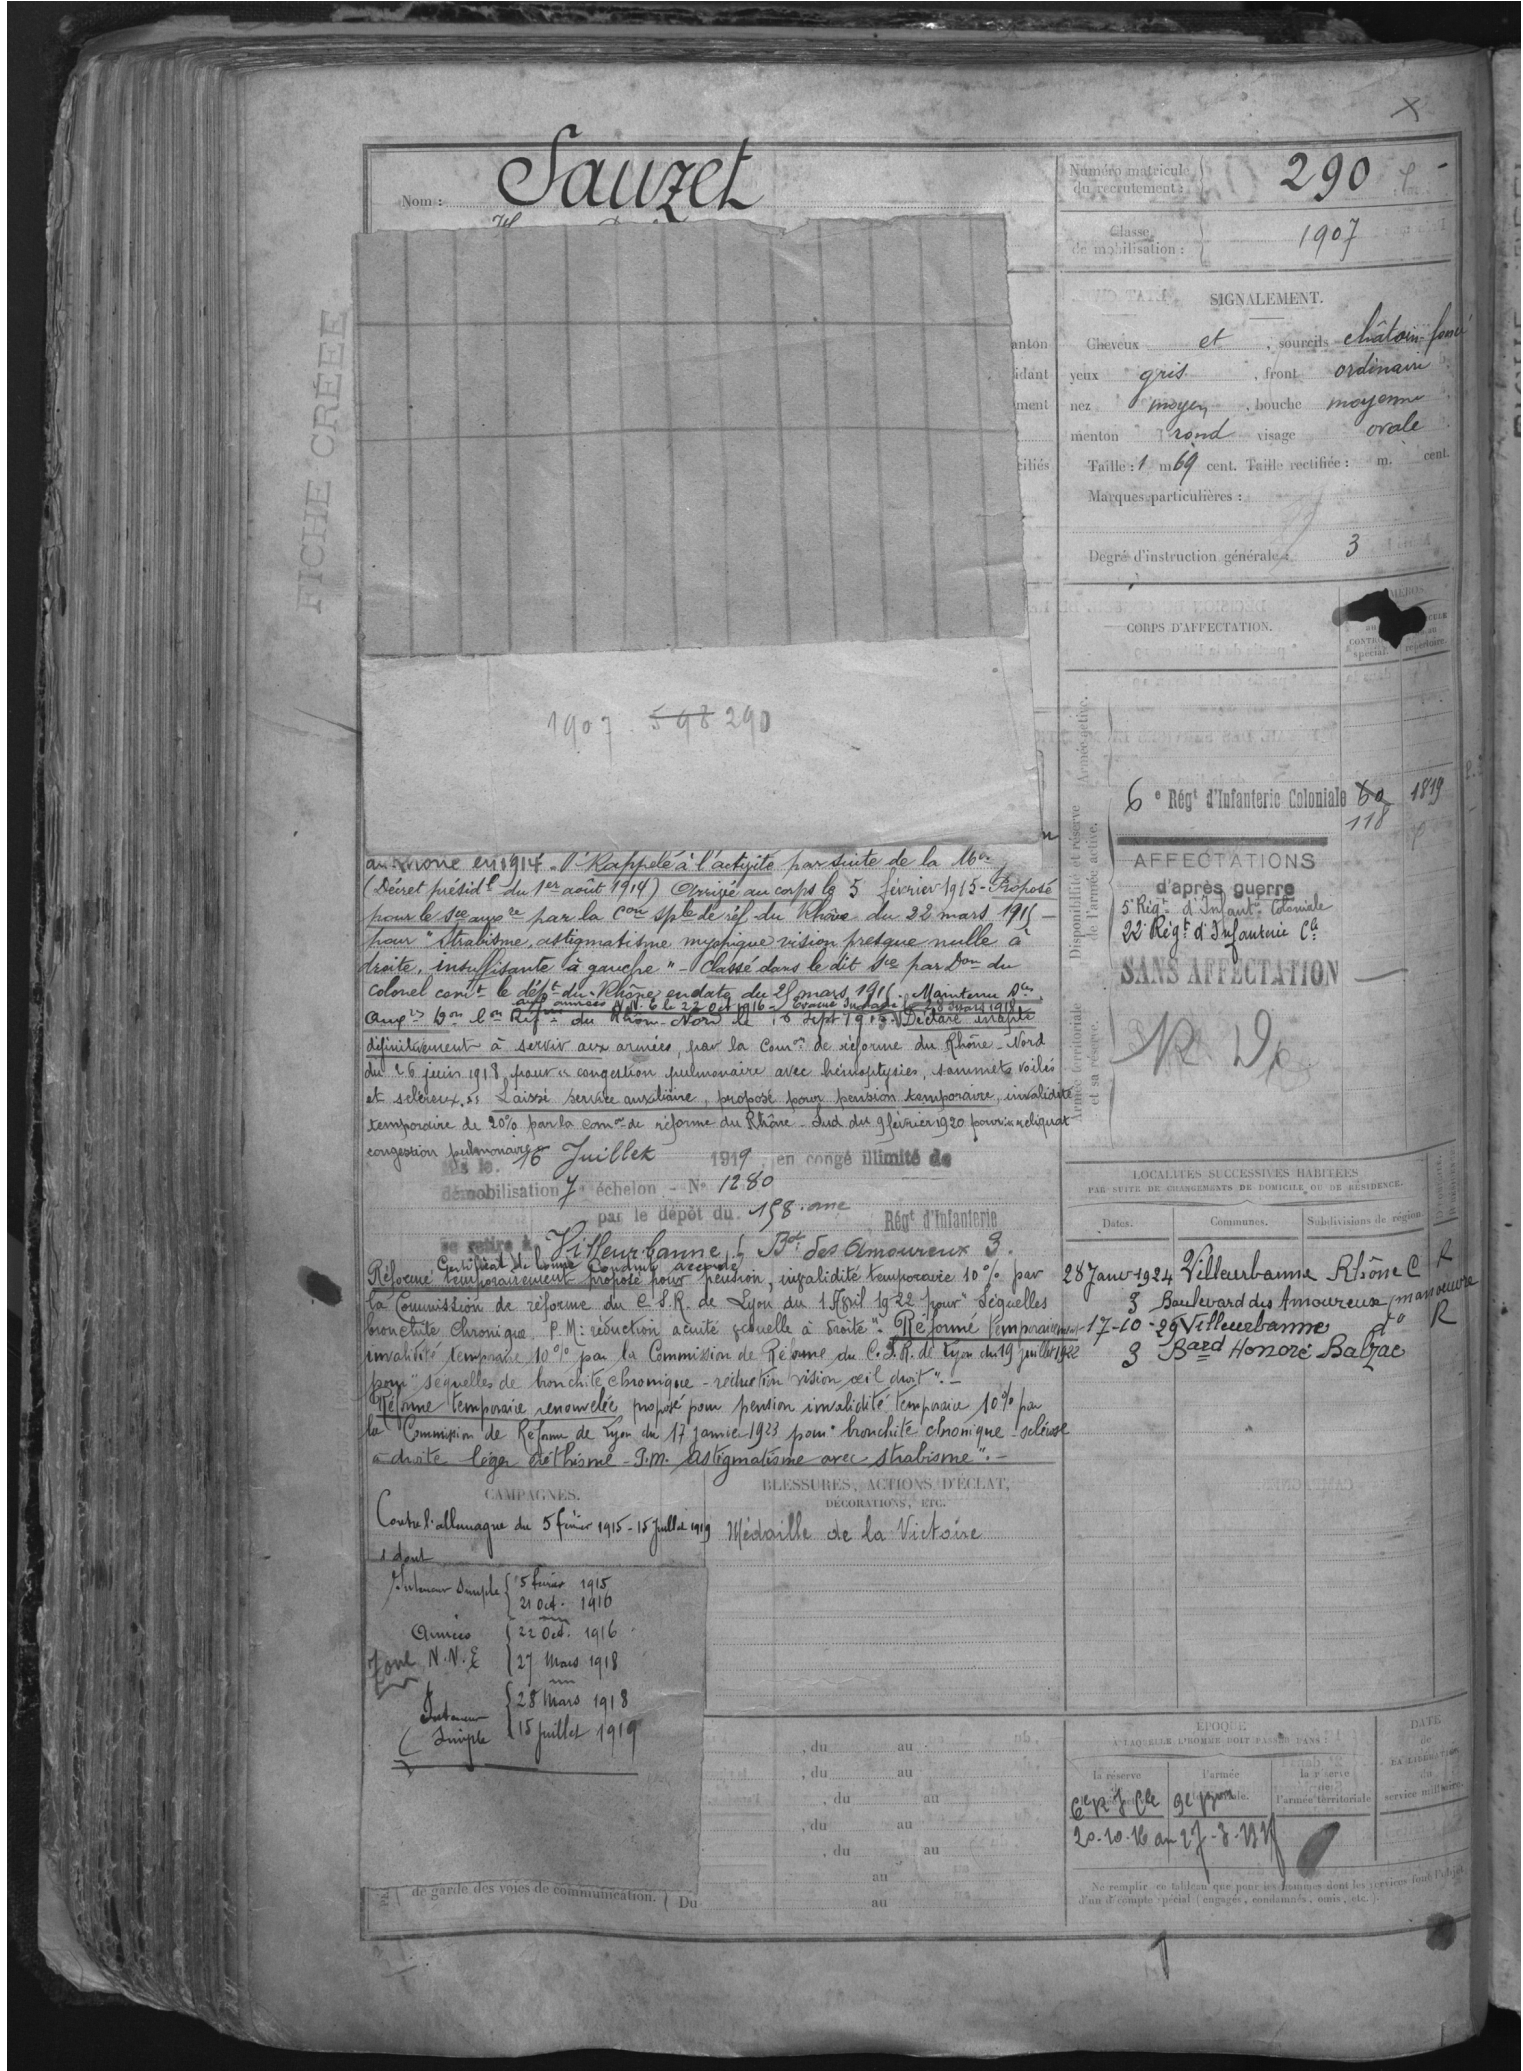 FICHE CRÉÉE.
Nom : Sauzet
Numéro matricule
du recrutement :
290
Classe
de mobilisation :
1907
SIGNALEMENT.
Cheveux et , sourcils châtain foncé
yeux gris , front ordinaire
nez moyen , bouche moyenne
menton rond visage ovale
Taille : 1 m 69 cent. Taille rectifiée : m. cent.
Marques particulières :
Degré d'instruction générale : 3
anton
idant
ment
ciliés
1907. 598 290
CORPS D'AFFECTATION.
CONTRÔLE
spécial.
répertoire.
Armée active.
Disponibilité et réserve
de l'armée active.
Armée territoriale
et sa réserve.
6e Régt d'Infanterie Coloniale 60 1819
118
AFFECTATIONS
d'après guerre
5e Régt d'Infantie Coloniale
22e Régt d'Infanterie Cle
SANS AFFECTATION
au Rhône en 1914. Rappelé à l'activité par suite de la Mon
(Décret présidl du 1er août 1914) Arrivé au corps le 5 février 1915 - Proposé
pour le sce auxre par la Con sple de réf. du Rhône du 22 mars 1915 -
pour "Strabisme, astigmatisme myopique vision presque nulle à
droite, insuffisante à gauche" - Classé dans le dit sce par Don du
Colonel comt le dépt du Rhône en date du 25 mars 1915. Maintenu Sce
aux armées N.N.E le 22 Oct 1916 - Evacué Intérieur le 28 mars 1918
Auxre Don Con Réfme du Rhône-Nord le Sept 191 Déclaré inapte
définitivement à servir aux armées, par la Comon de réforme du Rhône-Nord
du 26 juin 1918, pour "congestion pulmonaire avec hémoptysies, sommets voilés
et scléreux." Laissé service auxiliaire, proposé pour pension temporaire, invalidité
temporaire de 20% par la comon de réforme du Rhône-Sud du 9 février 1920 pour "reliquat
congestion pulmonaire"
le 16 Juillet 1919 en congé illimité de
démobilisation 7e échelon - No 1280
par le dépôt du 158ème Régt d'Infanterie
se retire à Villeurbanne, Bd des Amoureux 3.
Certificat de bonne Conduite accordé
Réformé temporairement proposé pour pension, invalidité temporaire 10% par
la Commission de réforme du C.S.R. de Lyon du 1 Avril 1922 pour "Séquelles
bronchite chronique. P.M: réduction acuité visuelle à droite". Réformé temporairement
invalidité temporaire 10% par la Commission de Réforme du C.S.R. de Lyon du 19 juillet 1922
pour "séquelles de bronchite chronique - réduction vision œil droit". -
Réforme temporaire renouvelée proposé pour pension invalidité temporaire 10% par
la Commission de Réforme de Lyon du 17 janvier 1923 pour "bronchite chronique - sclérose
à droite léger éréthisme - P.M. Astigmatisme avec strabisme". -
LOCALITÉS SUCCESSIVES HABITÉES
PAR SUITE DE CHANGEMENTS DE DOMICILE OU DE RÉSIDENCE.
Dates. Communes. Subdivisions de région.
28 Janv 1924 Villeurbanne Rhône C R
3 Boulevard des Amoureux (manoeuvre
17-10-29 Villeurbanne do R
3 Bard Honoré Balzac
CAMPAGNES.
Contre l'allemagne du 5 février 1915 - 15 Juillet 1919
dont
Intérieur Simple { 5 février 1915
21 Oct. 1916
Armées { 22 Oct. 1916
Zone N.N.E { 27 Mars 1918
Intérieur { 28 Mars 1918
Simple { 15 juillet 1919
BLESSURES, ACTIONS D'ÉCLAT,
DÉCORATIONS, ETC.
Médaille de la Victoire
, du au
, du au
, du au
, du au
, du au
au
de garde des voies de communication. ( Du au
ÉPOQUE
À LAQUELLE L'HOMME DOIT PASSER DANS :
la réserve
l'armée
la réserve
de
l'armée territoriale
DATE
de
LA LIBÉRATION
du
service militaire.
20-10-16 au
Ne remplir ce tableau que pour les hommes dont les services font l'objet
d'un décompte spécial (engagés, condamnés, omis, etc.).